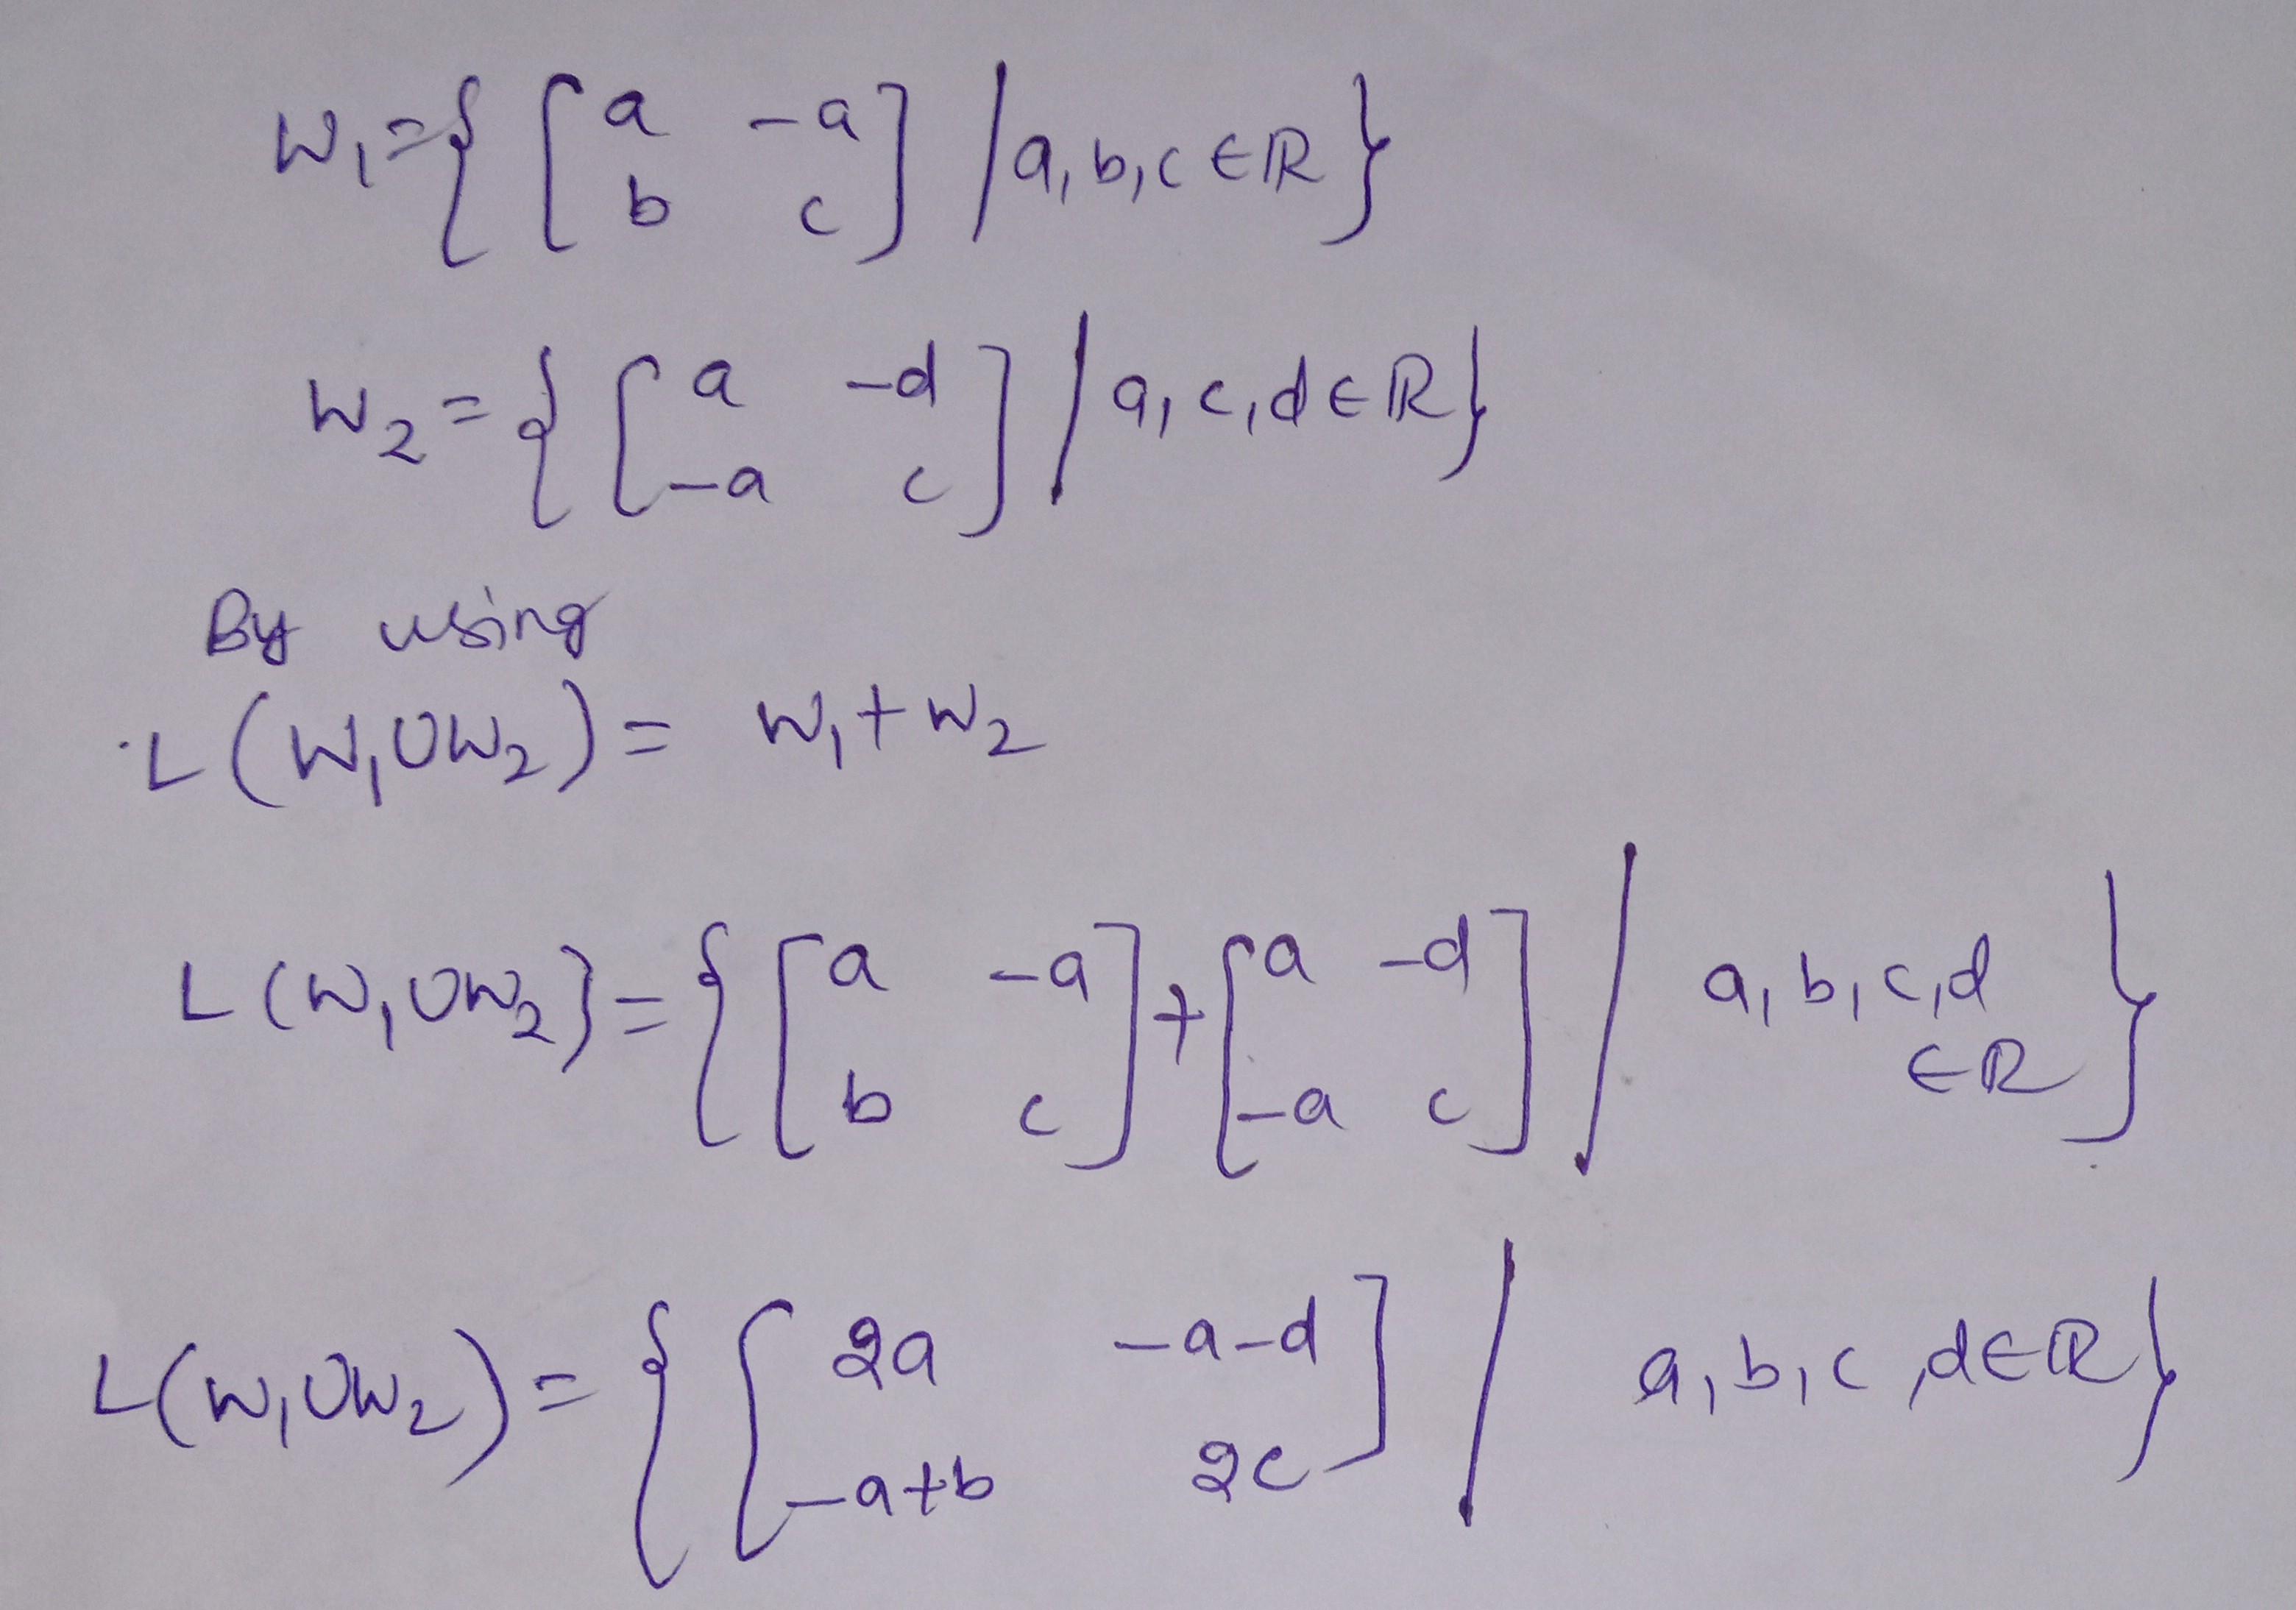 W₁ = { [ a -a
b c ] / a, b, c ∈ ℝ }
W₂ = { [ a -d
-a c ] / a, c, d ∈ ℝ }
By using
L(W₁∪W₂) = W₁+W₂
L(W₁∪W₂} = { [ a -a ] + [ a -d ] / a, b, c, d
b c -a c ∈ ℝ }
L(W₁∪W₂) = { [ 2a -a-d ] / a, b, c, d ∈ ℝ }
-a+b 2c